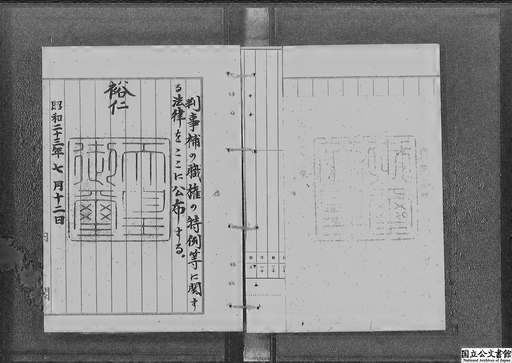 判事補の職権の特例等に関す
る法律をここに公布する。
裕仁
天皇
御璽
昭和二十三年七月十二日
内
閣
国立公文書館
National Archives of Japan